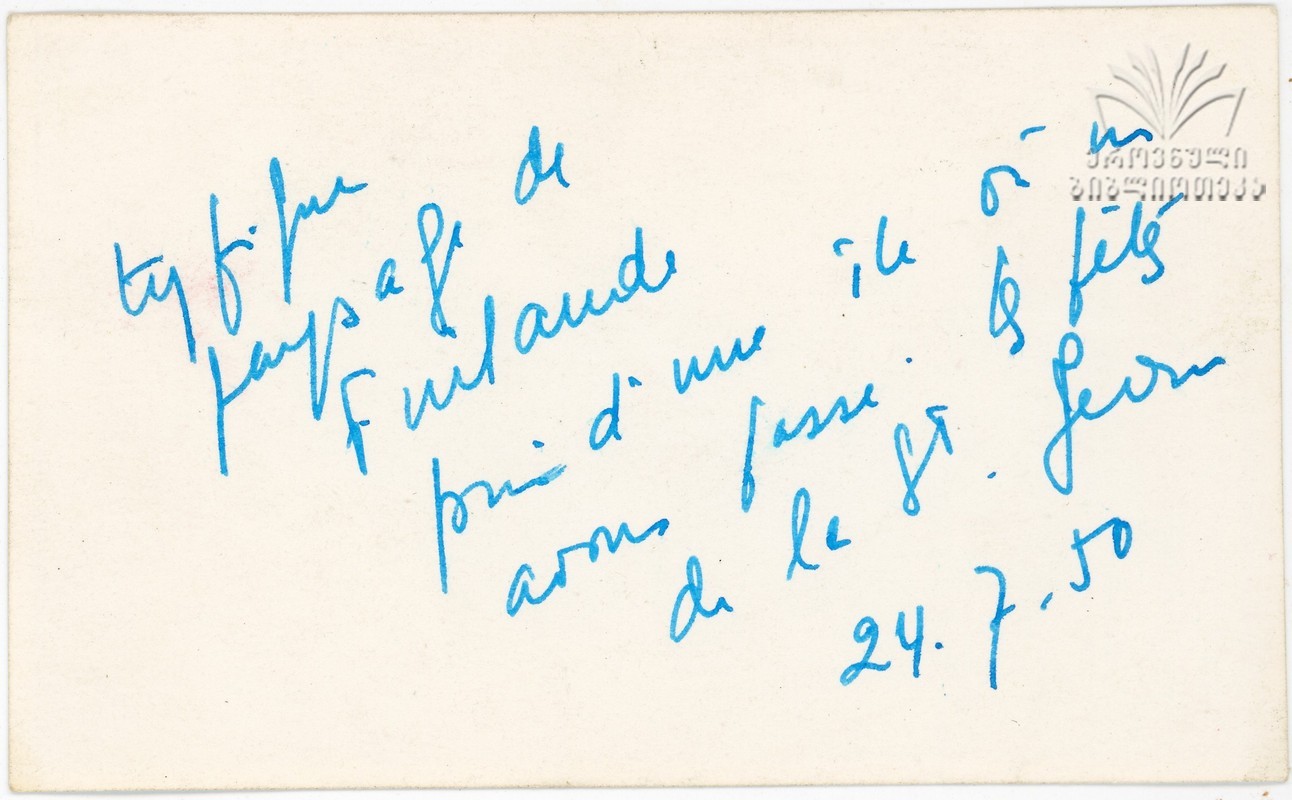 typique
paysage de
Finlande
pris d'une île où ns
avons passé les fêtes
de la St. Jean
24.7.50
ეროვნული
ბიბლიოთეკა